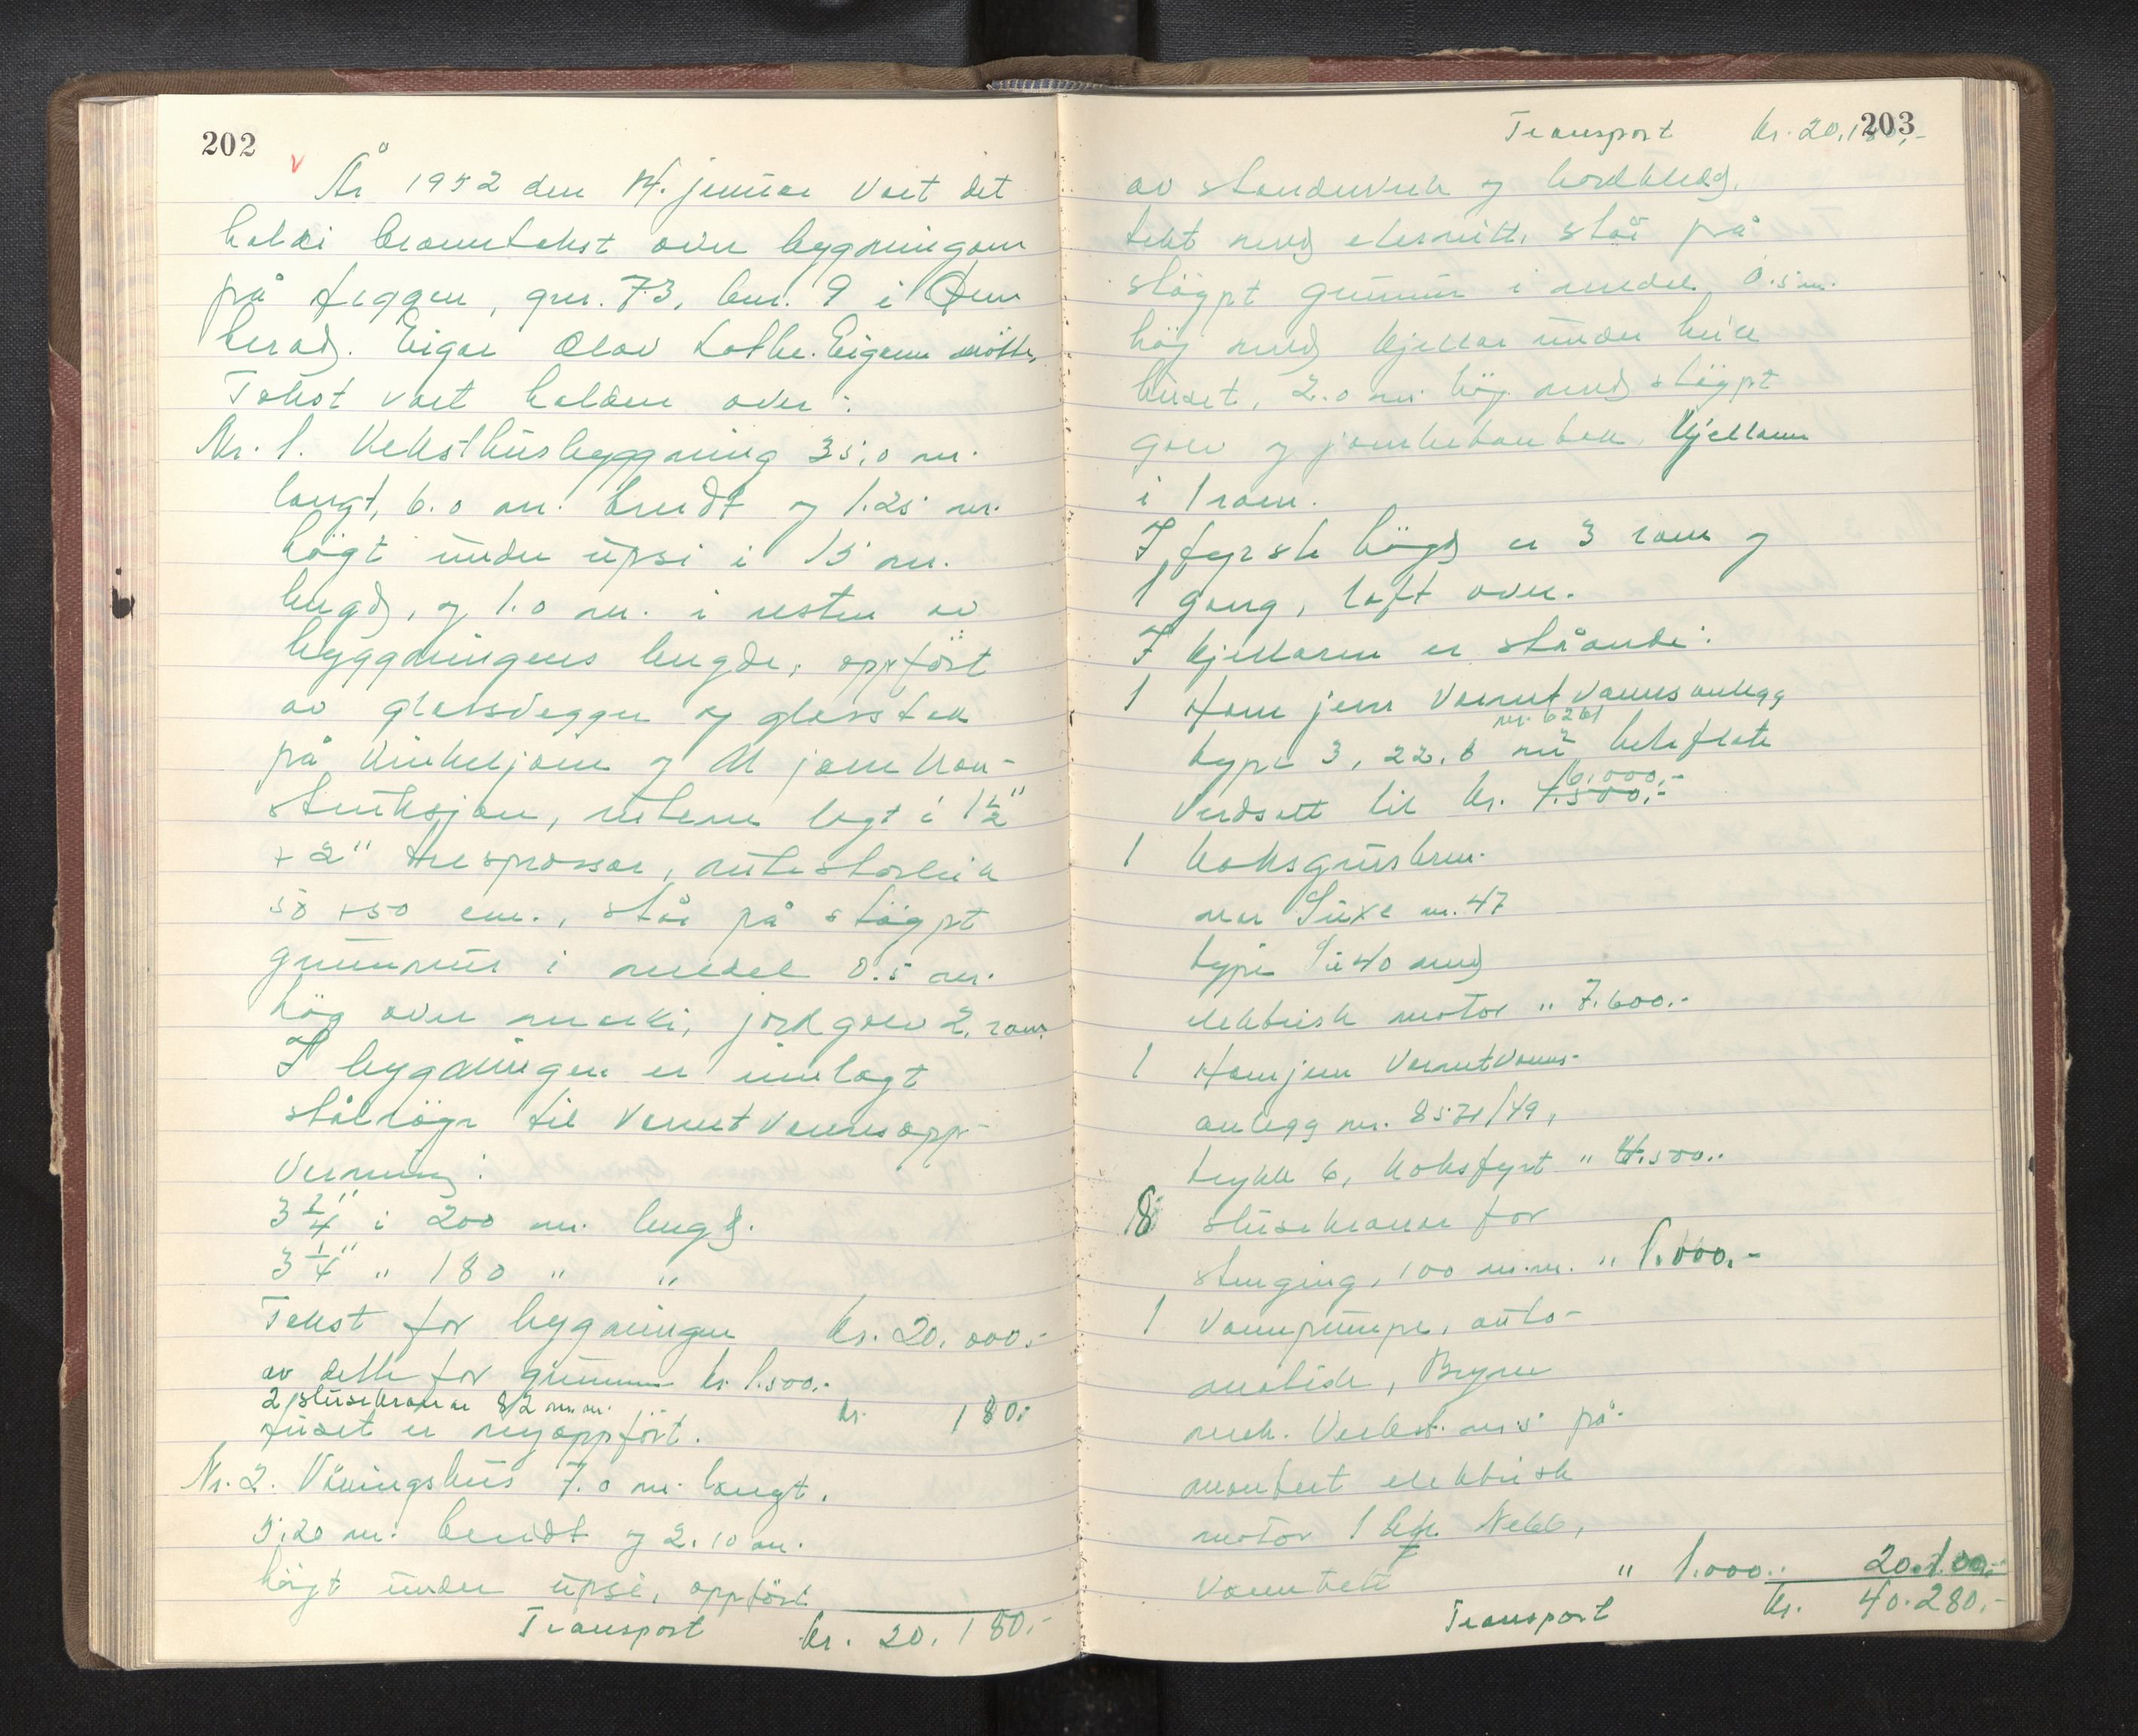 202
År 1952 den 14. januar vart det
haldi branntakst over bygningom
på Heggen, gnr. 73, bnr. 9 i
herad. Eigar Olav Lothe. Eigaren møtte.
Takst vart halden over:
Nr. 1. Veksthusbyggning 35,0 m.
langt, 6.0 m. breidt og 1.25 m.
högt under upsi i 15 m.
lengd, og 1.0 m. i resten av
byggningens lengde, oppfört
av glassvegger og glasstak
på vinkeljarn og
struksjon, rutene lagt i 1½"
+ 2" tresprossar, rutestorleik
50 + 50 cm., står på stöypt
grunnmur i medel 0.5 m.
hög over marki, jordgolv 2. rom.
I bygningen er innlagt
stålröyr til varmtvannsopp-
varming:
3¼" i 200 m. lengd.
3¼" " 180 " "
Takst for bygningen kr. 20.000.-
av dette for grunnmur kr. 1.500.-
2 slusekranar 82 m.m. kr. 180.-
Huset er nyoppfört.
Nr. 2. Våningshus 7.0 m. langt.
5.20 m. breidt og 2.10 m.
högt under upsi, oppfört
Transport kr. 20.180.-
203
Transport kr. 20.180,-
av standerverk og bordkledd,
tekt med eternitt, står på
stöypt grunnmur i medel 0.5 m.
hög med kjellar under heile
huset, 2.0 m. hög med stöypt
golv og jarnbetontak. Kjellaren
i 1 rom.
I fyrste högd er 3 rom og
1 gang, loft over.
I kjellaren er ståande:
1 Hamjern Varmtvannsanlegg
nr. 6261
type 3, 22.6 m² heteflate
6.000.-
Verdsett til kr. 4.500.-
1 koksgrusbren-
nar Suxe nr. 47
type Su 40 med
elektrisk motor " 7.600.-
1 Hamjern Varmtvanns-
anlegg nr. 8571/49,
trykk 6, koksfyrt " 4.500.-
18 slusekranar for
stenging, 100 m.m. " 1.000.-
1 Vannpumpe, auto-
matisk, Bryne
mek. Verkst. nr. 5 på-
montert elektrisk
motor 1 hk. Nebb,
vanntett " 1.000.- 20.100.-
Transport kr. 40.280,-